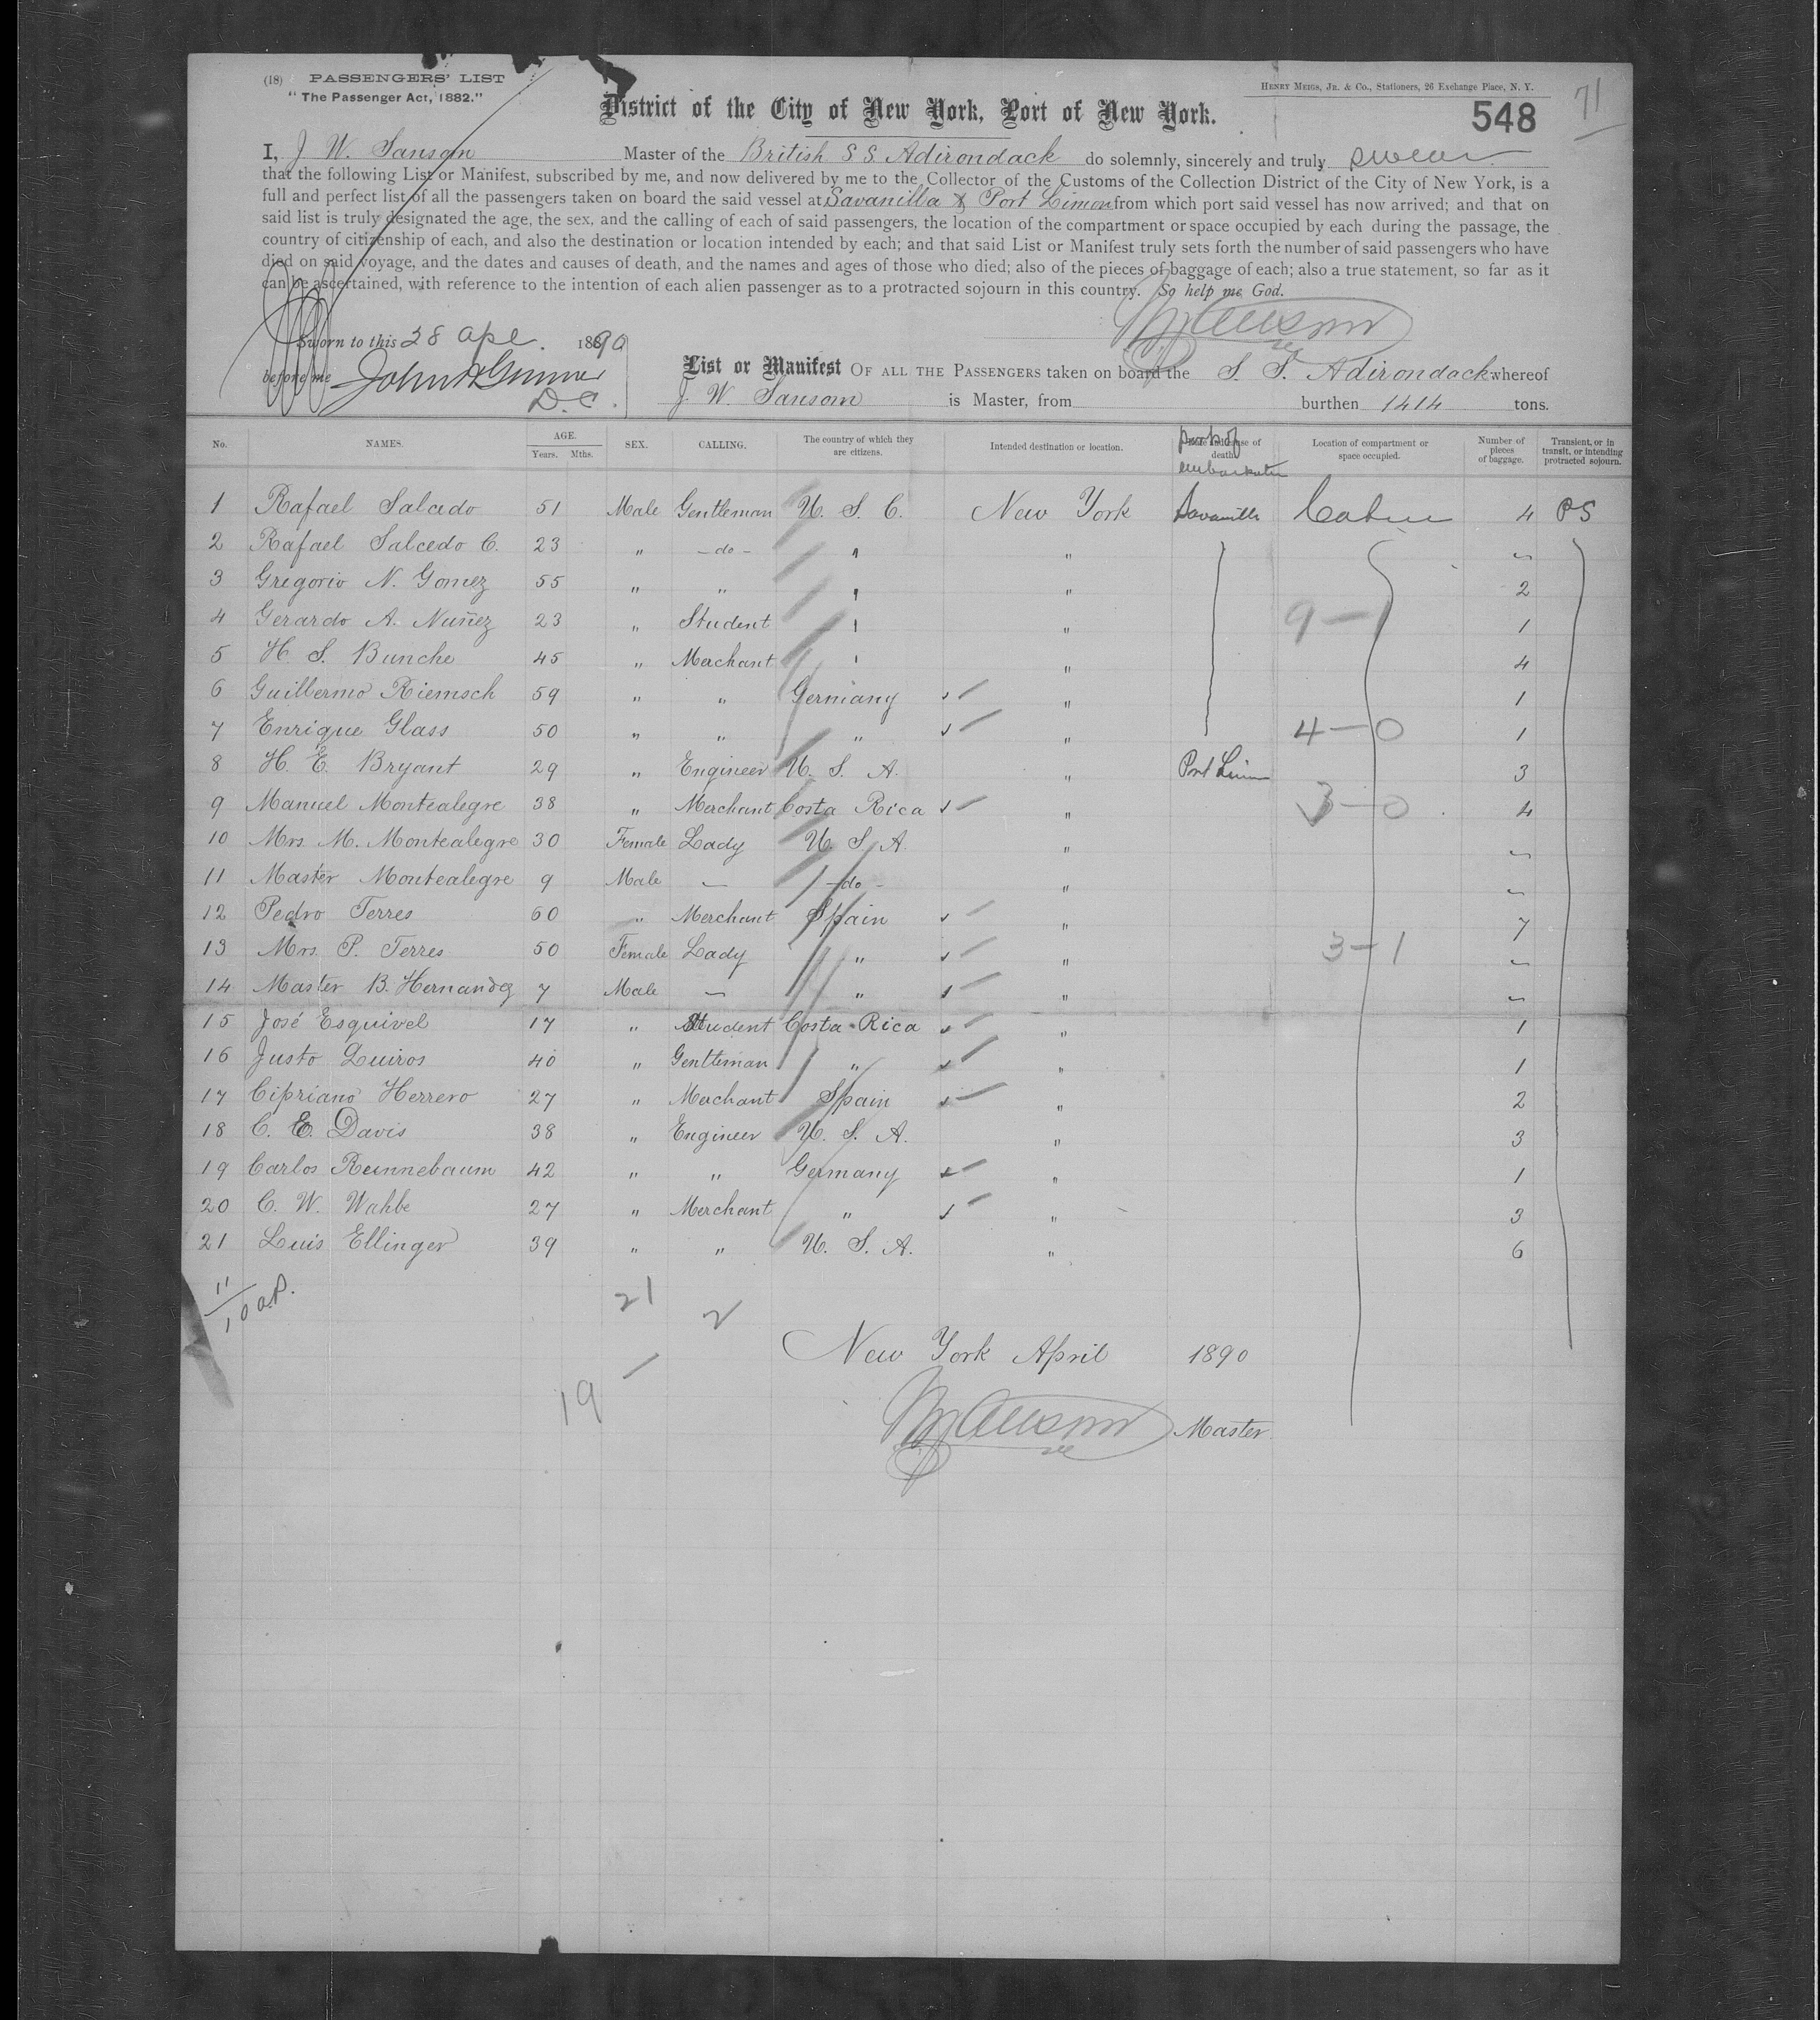 (18) PASSENGERS' LIST
"The Passenger Act, 1882."
HENRY MEIGS, JR. & CO., Stationers, 26 Exchange Place, N. Y.
District of the City of New York, Port of New York.
548
71
I, J. W. Sansom Master of the British S S. Adirondack do solemnly, sincerely and truly swear
that the following List or Manifest, subscribed by me, and now delivered by me to the Collector of the Customs of the Collection District of the City of New York, is a
full and perfect list of all the passengers taken on board the said vessel at Savanilla & Port Limon from which port said vessel has now arrived; and that on
said list is truly designated the age, the sex, and the calling of each of said passengers, the location of the compartment or space occupied by each during the passage, the
country of citizenship of each, and also the destination or location intended by each; and that said List or Manifest truly sets forth the number of said passengers who have
died on said voyage, and the dates and causes of death, and the names and ages of those who died; also of the pieces of baggage of each; also a true statement, so far as it
can be ascertained, with reference to the intention of each alien passenger as to a protracted sojourn in this country. So help me God.
Sworn to this 28 Apl. 1890
before me
D.C.
List or Manifest OF ALL THE PASSENGERS taken on board the S. S. Adirondack whereof
J. W. Sansom is Master, from burthen 1414 tons.
No. NAMES. AGE. Years. Mths. SEX. CALLING. The country of which they are citizens. Intended destination or location. port of embarkation Location of compartment or space occupied. Number of pieces of baggage. Transient, or in transit, or intending protracted sojourn.
1 Rafael Salcedo 51 Male Gentleman U. S. C. New York Savanilla Cabin 4 PS
2 Rafael Salcedo C. 23 " -do- " "
3 Gregorio N. Gomez 55 " " " " 2
4 Gerardo A. Nuñez 23 " Student " " 9-1 1
5 H. S. Bunche 45 " Merchant " " 4
6 Guillermo Riemsch 59 " " Germany " 1
7 Enrique Glass 50 " " " " 4-0 1
8 H. E. Bryant 29 " Engineer U. S. A. " Port Limon 3
9 Manuel Montealegre 38 " Merchant Costa Rica " 3-0 4
10 Mrs. M. Montealegre 30 Female Lady U. S. A. "
11 Master Montealegre 9 Male — -do- "
12 Pedro Terres 60 " Merchant Spain " 7
13 Mrs. P. Terres 50 Female Lady " " 3-1
14 Master B. Hernandez 7 Male — " "
15 José Esquivel 17 " Student Costa Rica " 1
16 Justo Quiros 40 " Gentleman " " 1
17 Cipriano Herrero 27 " Merchant Spain " 2
18 C. E. Davis 38 " Engineer U. S. A. " 3
19 Carlos Runnebaum 42 " " Germany " 1
20 C. W. Wahbe 27 " Merchant " " 3
21 Luis Ellinger 39 " " U. S. A. " 6
11
10 a.P.
21
2
19
New York April 1890
Master